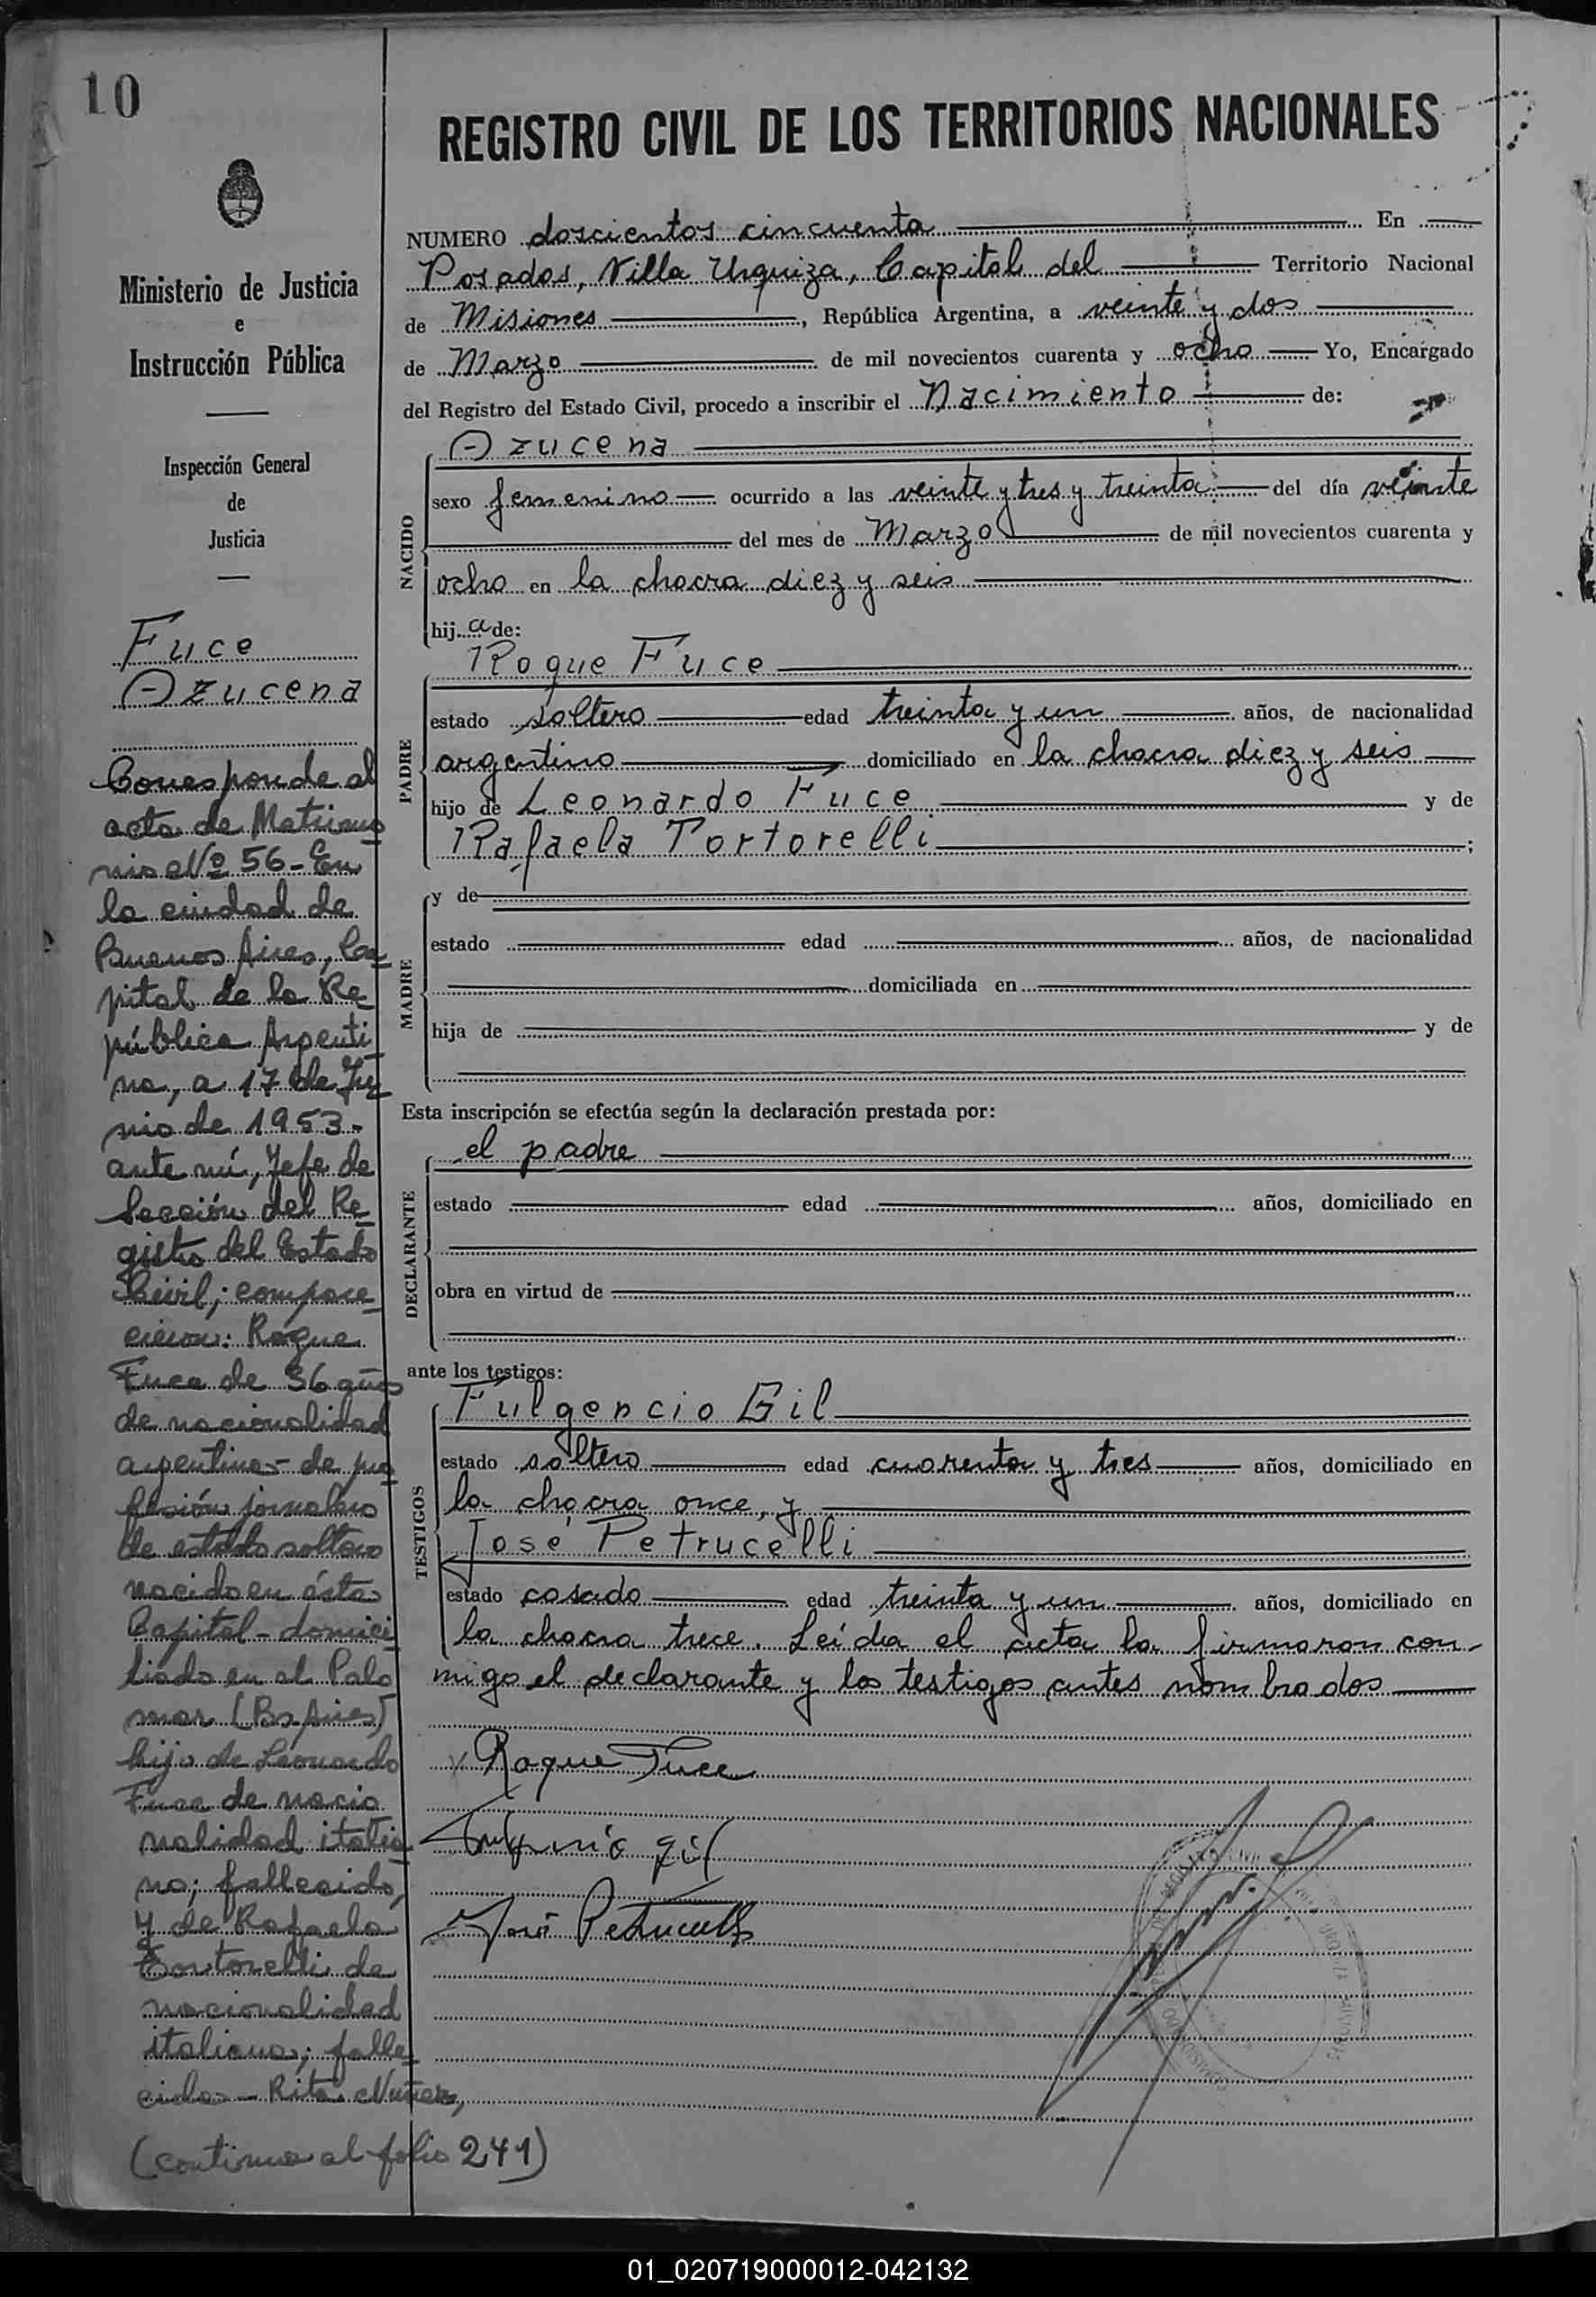 10
REGISTRO CIVIL DE LOS TERRITORIOS NACIONALES
Ministerio de Justicia
e
Instrucción Pública
Inspección General
de
Justicia
Fuce
Azucena
Corresponde al
acta de Matrimo
nio Nº 56 - En
la ciudad de
Buenos Aires, Ca
pital de la Re
pública Argenti
na, a 17 de Ju
nio de 1953.
ante mí, Jefe de
Sección del Re
gistro del Estado
Civil; compare
cieron: Roque
Fuce de 36 años
de nacionalidad
argentina - de pro
fesión jornalero
de estado soltero
nacido en ésta
Capital - domici
liado en el Palo
mar (Bs Aires)
hijo de Leonardo
Fuce de nacio
nalidad italia
na; fallecido,
y de Rafaela
Tortorelli de
nacionalidad
italiana; falle
cida - Rita Nuñez,
(continua al folio 241)
NUMERO doscientos cincuenta En
Posadas, Villa Urquiza, Capital del Territorio Nacional
de Misiones, República Argentina, a veinte y dos
de Marzo de mil novecientos cuarenta y ocho Yo, Encargado
del Registro del Estado Civil, procedo a inscribir el Nacimiento de:
NACIDO
Azucena
sexo femenino ocurrido a las veinte y tres y treinta del día veinte
del mes de Marzo de mil novecientos cuarenta y
ocho en la chacra diez y seis
hija de:
PADRE
Roque Fuce
estado soltero edad treinta y un años, de nacionalidad
argentino domiciliado en la chacra diez y seis
hijo de Leonardo Fuce y de
Rafaela Tortorelli;
MADRE
y de
estado edad años, de nacionalidad
domiciliada en
hija de y de
Esta inscripción se efectúa según la declaración prestada por:
DECLARANTE
el padre
estado edad años, domiciliado en
obra en virtud de
ante los testigos:
TESTIGOS
Fulgencio Gil
estado soltero edad cuarenta y tres años, domiciliado en
la chacra once, y
José Petrucelli
estado casado edad treinta y un años, domiciliado en
la chacra trece. Leída el acta la firmaron con-
migo el declarante y los testigos antes nombrados
Roque Fuce
gil
José Petrucelli
01_020719000012-042132